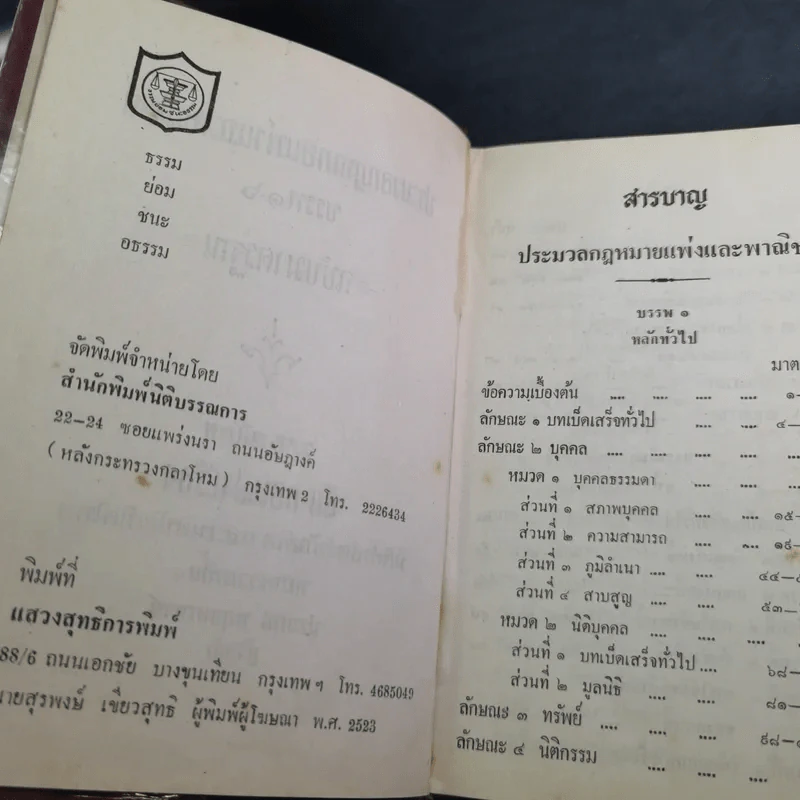 ธรรม
ย่อม
ชนะ
อธรรม
จัดพิมพ์จำหน่ายโดย
สำนักพิมพ์นิติบรรณการ
22-24 ซอยแพร่งนรา ถนนอัษฎางค์
(หลังกระทรวงกลาโหม) กรุงเทพ 2 โทร. 2226434
พิมพ์ที่
แสวงสุทธิการพิมพ์
88/6 ถนนเอกชัย บางขุนเทียน กรุงเทพฯ โทร. 4685049
นายสุรพงษ์ เขียวสุทธิ ผู้พิมพ์ผู้โฆษณา พ.ศ. 2523
สารบาญ
ประมวลกฎหมายแพ่งและพาณิช
บรรพ ๑
หลักทั่วไป
มาต
ข้อความเบื้องต้น .... .... .... .... ๑-
ลักษณะ ๑ บทเบ็ดเสร็จทั่วไป .... .... .... ๔-
ลักษณะ ๒ บุคคล .... .... .... .... ....
หมวด ๑ บุคคลธรรมดา .... .... ....
ส่วนที่ ๑ สภาพบุคคล .... .... ๑๕-
ส่วนที่ ๒ ความสามารถ .... .... ๑๙-
ส่วนที่ ๓ ภูมิลำเนา .... .... ๔๔-
ส่วนที่ ๔ สาบสูญ .... .... ๕๓-
หมวด ๒ นิติบุคคล .... .... .... ....
ส่วนที่ ๑ บทเบ็ดเสร็จทั่วไป .... ๖๘-
ส่วนที่ ๒ มูลนิธิ .... .... ๘๑-
ลักษณะ ๓ ทรัพย์ .... .... .... .... ๙๘-
ลักษณะ ๔ นิติกรรม .... .... ....